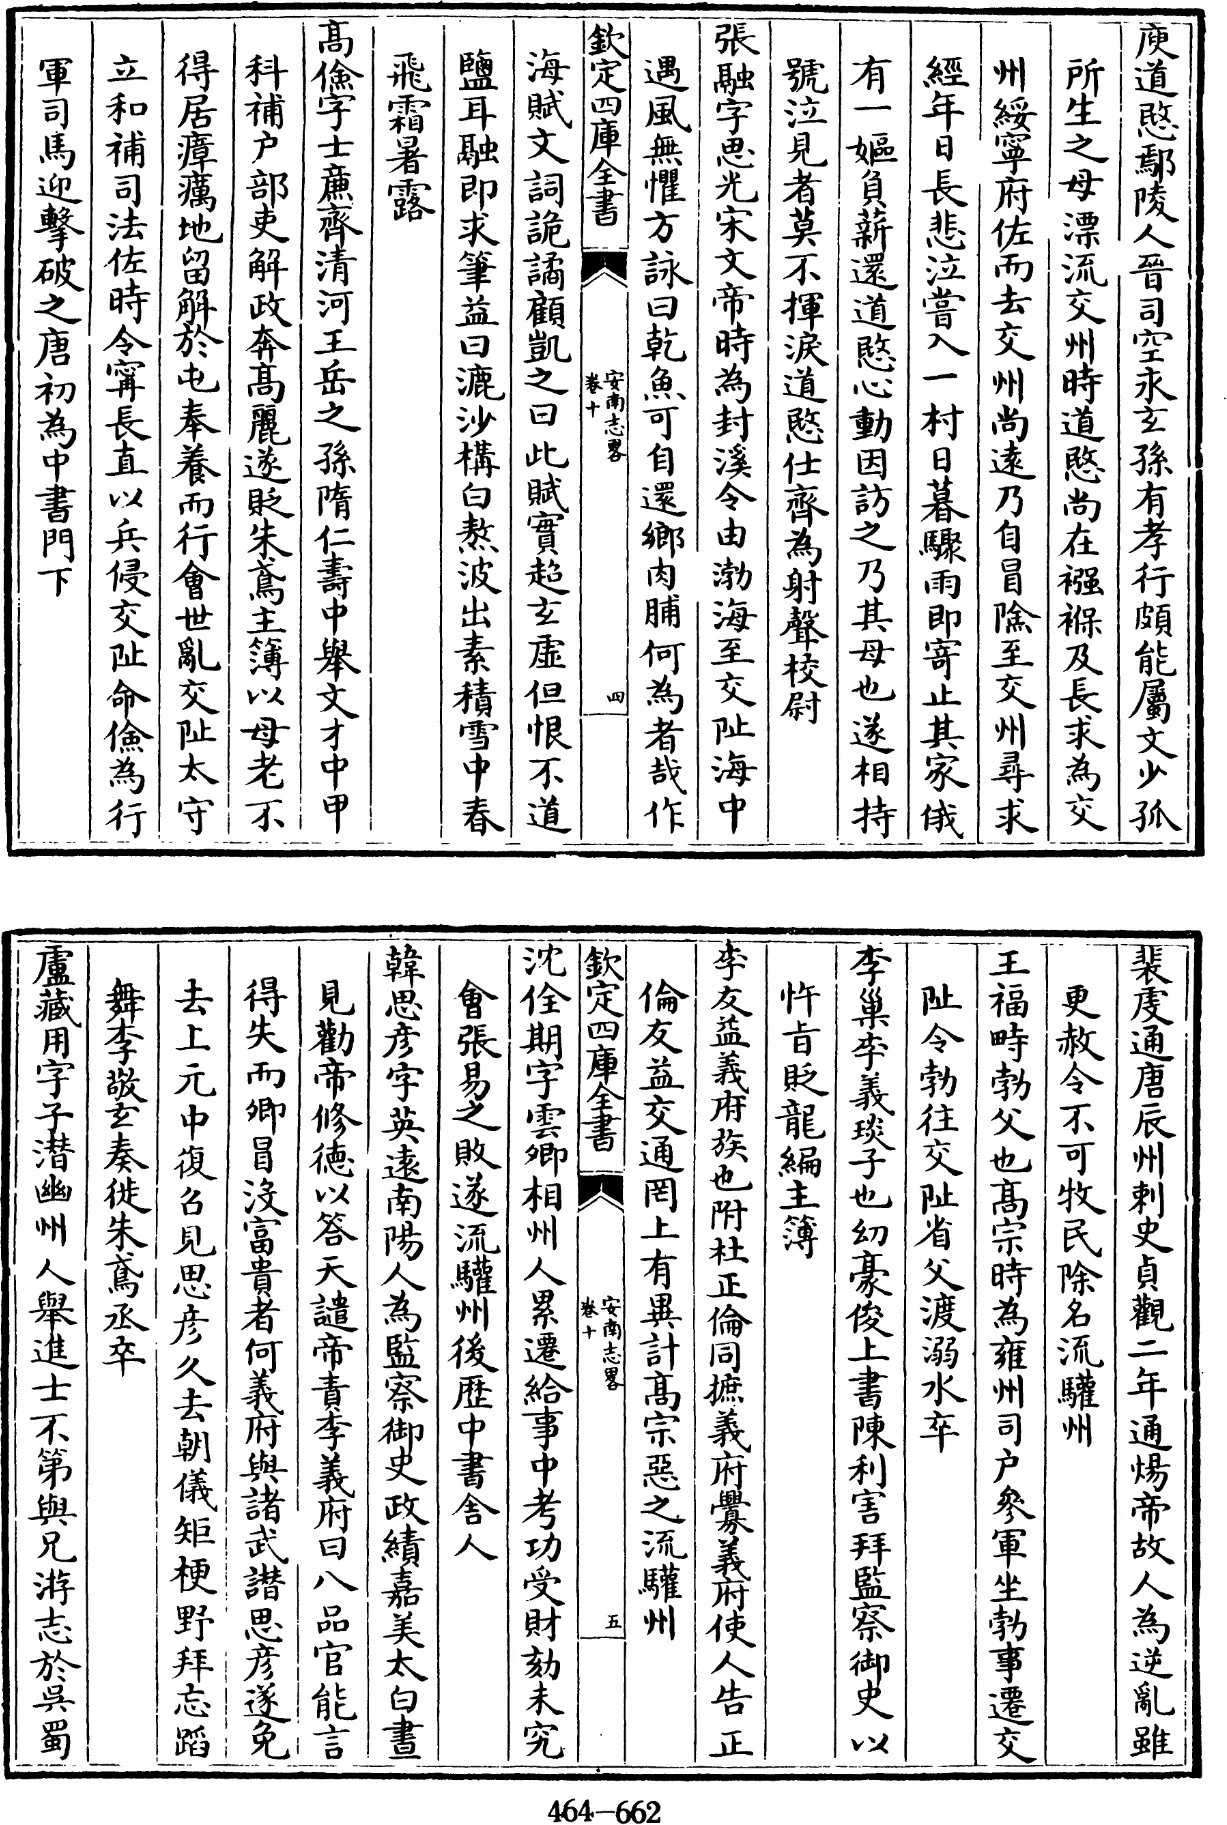 庾道愍鄢陵人晉司空氷玄孫有孝行頗能屬文少孤
所生之母漂流交州時道愍尚在襁褓及長求為交
州綏寧府佐而去交州尚遠乃自冒險至交州尋求
經年日長悲泣嘗入一村日暮驟雨即寄止其家俄
有一嫗負薪還道愍心動因訪之乃其母也遂相持
號泣見者莫不揮淚道愍仕齊為射聲校尉
張融字思光宋文帝時為封溪令由渤海至交阯海中
遇風無懼方詠曰乾魚可自還鄉肉脯何為者哉作
欽定四庫全書
安南志畧
卷十
四
海賦文詞詭譎顧凱之曰此賦實超玄虛但恨不道
鹽耳融即求筆益曰漉沙構白熬波出素積雪中春
飛霜暑露
髙儉字士亷齊清河王岳之孫隋仁壽中舉文才中甲
科補户部吏解政奔髙麗遂貶朱鳶主簿以母老不
得居瘴癘地留解於屯奉養而行會世亂交阯太守
立和補司法佐時令寗長直以兵侵交阯命儉為行
軍司馬迎擊破之唐初為中書門下
裴䖍通唐辰州刺史貞觀二年通煬帝故人為逆亂雖
更赦令不可牧民除名流驩州
王福畤勃父也髙宗時為雍州司户叅軍坐勃事遷交
阯令勃往交阯省父渡溺水卒
李巢李義琰子也幼豪俊上書陳利害拜監察御史以
忤旨貶龍編主簿
李友益義府族也附杜正倫同摭義府釁義府使人告正
倫友益交通罔上有異計髙宗惡之流驩州
欽定四庫全書
安南志畧
卷十
五
沈佺期字雲卿相州人累遷給事中考功受財劾未究
會張易之敗遂流驩州後歴中書舎人
韓思彦字英遠南陽人為監察御史政績嘉美太白晝
見勸帝修德以答天譴帝責李義府曰八品官能言
得失而卿冒沒富貴者何義府與諸武譖思彦遂免
去上元中復召見思彦久去朝儀矩梗野拜忘蹈
舞李敬玄奏徙朱鳶丞卒
盧藏用字子潛幽州人舉進士不第與兄游志於吳蜀
464-662